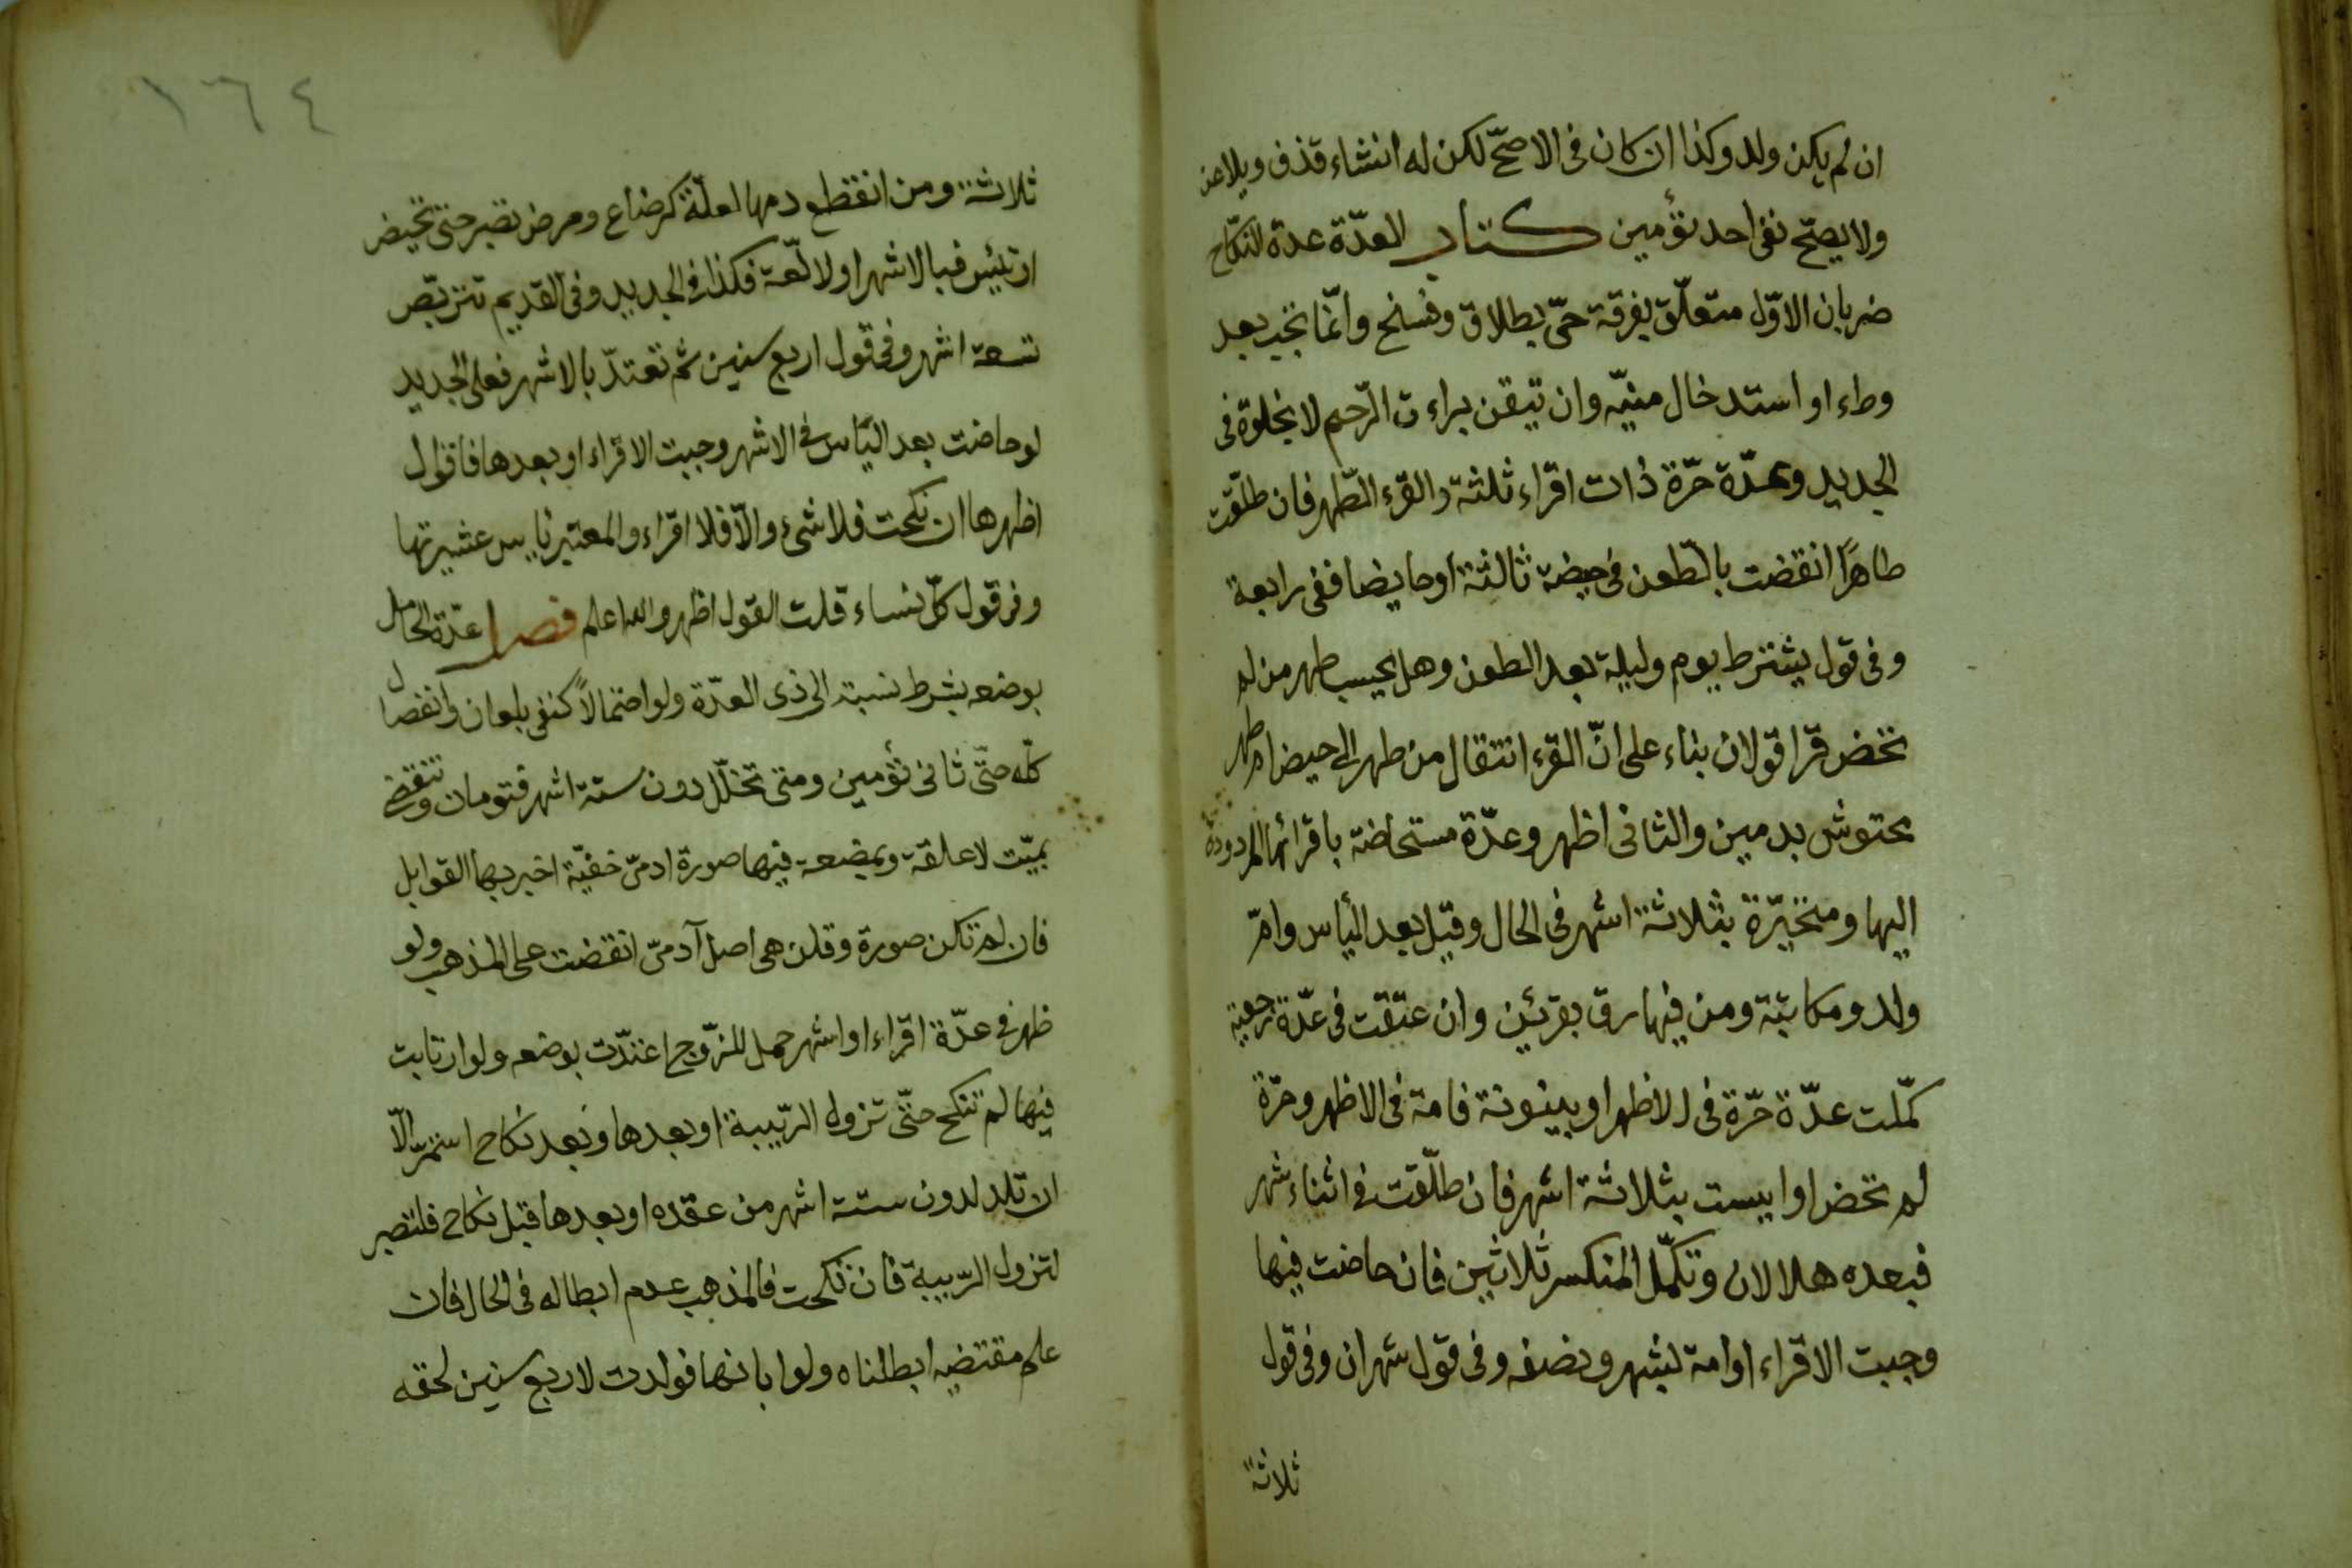 ان لم يكن ولد وكذا ان كان فى الاصحّ لكن له انشاء قذف ويلاعن
ولا يصحّ نفى احد تؤمين كتاب العدّة عدة النكاح
ضربان الاوّل متعلّق بفرقة حىّ بطلاق وفسخ وانّما تجب بعد
وطء او استدخال منيّه وان تيقن براءت الرّحم لا بخلوة فى
الجديد وعدّة حرّة ذات اقراء ثلثة والقرء الطّهر فان طلّقت
طاهرًا انقضت بالطّعن فى حيضة ثالثة او حايضا ففى رابعة
وفى قول يشترط يوم وليلة بعد الطعن وهل يحسب طهر من لم
تحض قرا قولان بناء على انّ القرء انتقال من طهر الى حيض ام طهر
محتوش بدمين والثانى اظهر وعدّة مستحاضة باقرائها المردودة
اليها ومتحيّرة بثلاثة اشهر فى الحال وقيل بعد اليأس وامّ
ولد ومكاتبة ومن فيها رق بقرئين وان عتقت فى عدّة رجعية
كمّلت عدّة حرّة فى الاظهر او بينونة فامة فى الاظهر وحرّة
لم تحض او ايست بثلاثة اشهر فان طلّقت فى اثناء شهر
فبعده هلالان وتكمّل المنكسر ثلاثين فان حاضت فيها
وجبت الاقراء او امة لبشهر ونصف وفى قول شهران وفى قول
ثلاثة
١٦٤
ثلاثة ومن انقطع دمها لعلّة كرضاع ومرض تصبر حتى تحيض
او تيئس فبالاشهر او لا لعّة فكذا فى الجديد وفى القديم تتربّص
تسعة اشهر وفى قول اربع سنين ثم تعتدّ بالاشهر فعلى الجديد
لو حاضت بعد اليأس فى الاشهر وجبت الاقراء او بعدها فاقوال
اظهرها ان نكحت فلا شىء والّا فلا اقراء والمعتبر يأس عشيرتها
وفى قول كلّ نساء قلت القول اظهر والله اعلم فصل عدّة الحامل
بوضعه بشرط نسبته الى ذى العدّة ولو احتمالاً كنفى بلعان وانفصال
كلّه حتّى ثانى تؤمين ومتى تخلّل دون ستة اشهر فتومان وتنقضى
بميّت لا علقة وبمضعة فيها صورة ادمىّ خفيّة اخبر بها القوابل
فان لم تكن صورة وقلن هى اصل آدمىّ انقضت على المذهب ولو
ظهر فى عدّة اقراء او اشهر حمل للزّوج اعتدّت بوضعه ولو ارتابت
فيها لم تنكح حتّى تزول الرّيبة او بعدها وبعد نكاح استمرّ الّا
ان تلد لدون ستة اشهر من عقده او بعدها قبل نكاح فلتصبر
لتزول الرّيبة فان نكحت فالمذهب عدم ابطاله فى الحال فان
علم مقتضيه ابطلناه ولو ابانها فولدت لاربع سنين لحقه